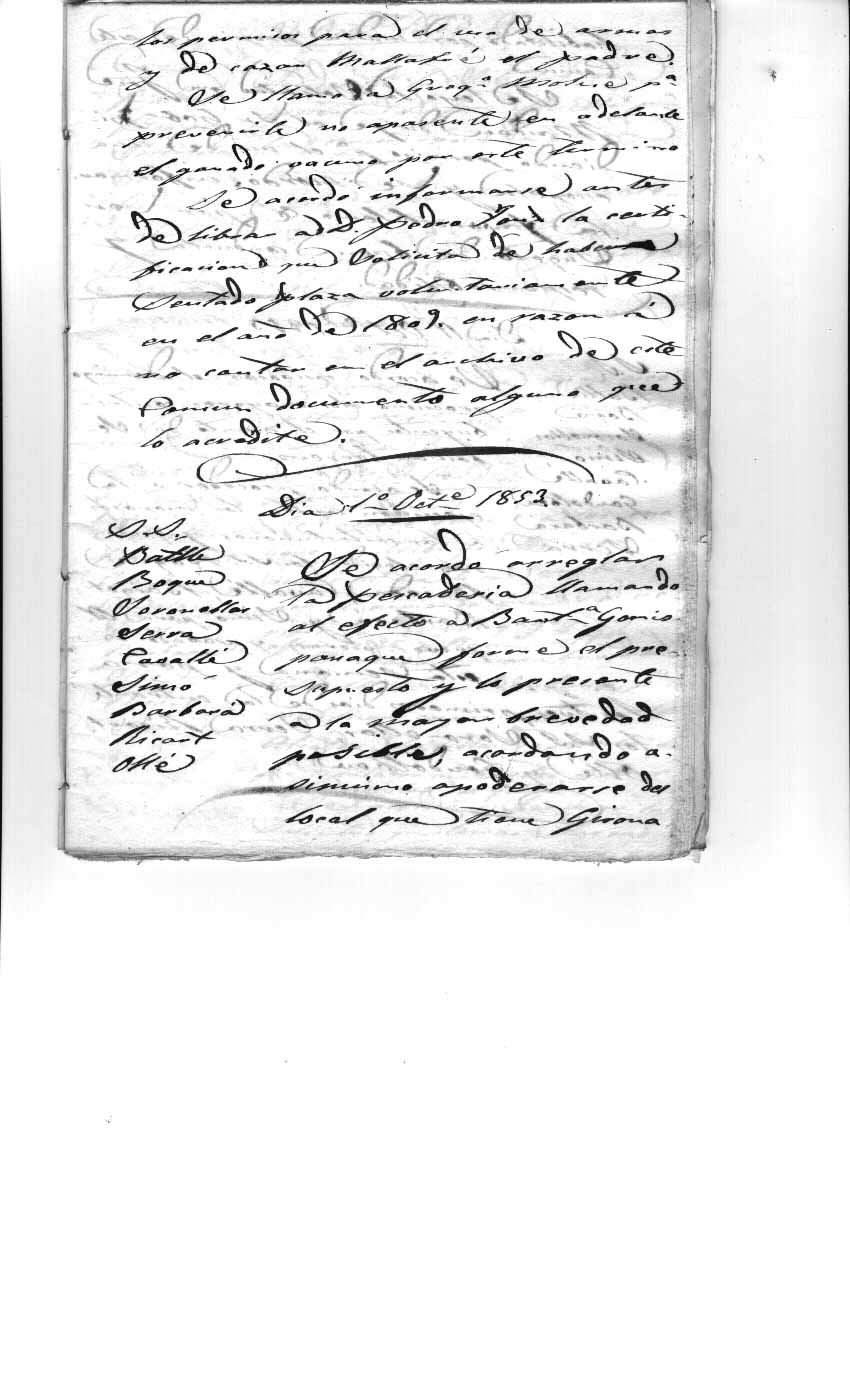 los permisos para el uso de armas
y de cazar Mallafré el padre.
Se llamó a Greg.º Moline p.ª
prevenirle no apasente en adelante
el ganado vacuno por este termino
Se acordó informarse antes
de librar a D. Pedro la certi-
ficacion que solicita de haber
sentado plaza voluntariamente
en el año de 1809. en razon á
no constar en el archivo de este
Comun documento alguno que
lo acredite.
Dia 1.º Oct.e 1853
S.S.
Batlle
Boqué
Soronellas
Serra
Cavallé
Simó
Barbará
Ricart
Ollé
Se acordó arreglar
la pescaderia llamando
al efecto a Baut.ª
paraque forme el pre-
supuesto y lo presente
a la mayor brevedad
posible, acordando a-
simismo apoderarse del
local que tiene Girona